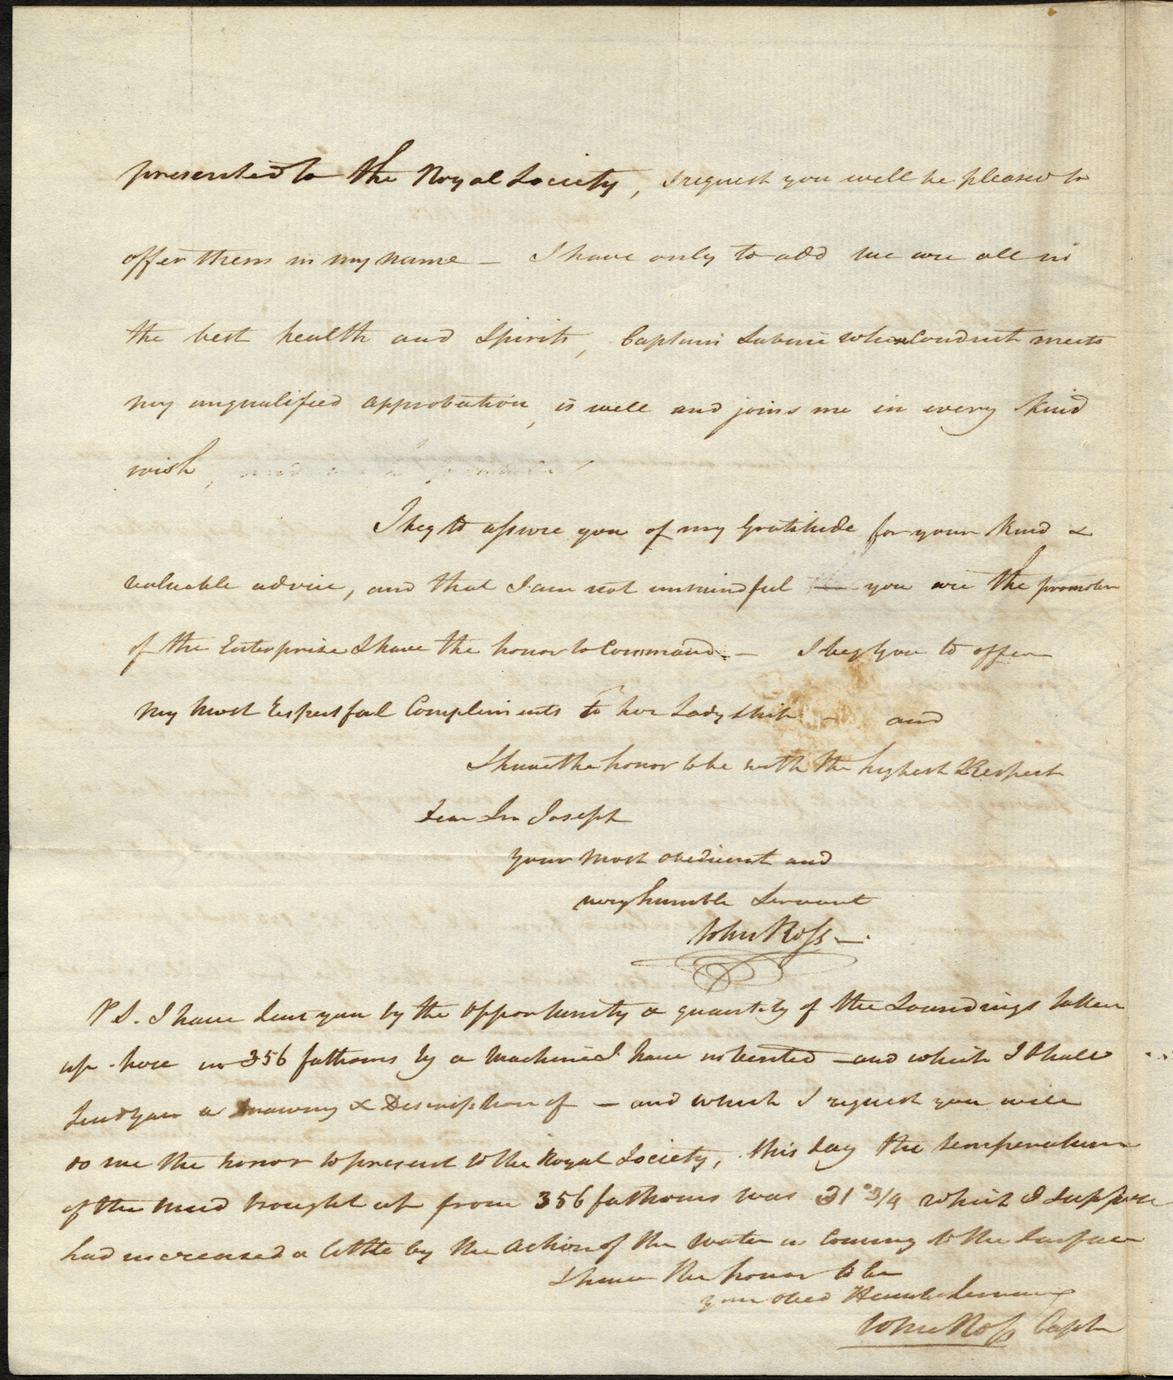 presented to the Royal Society, I request you will be pleased to
offer them in my name – I have only to add we are all in
the best health and Spirits, Captain Sabine whose Conduct meets
my unqualified approbation, is well and joins me in every kind
wish,
I beg to assure you of my Gratitude for your kind &
valuable advice, and that I am not unmindful you are the promoter
of the Enterprise I have the honor to Command. – I beg you to offer
my most Respectful Compliments to her Ladyship – and
I have the honor to be with the highest Respect
Dear Sir Joseph
your most obedient and
very humble Servant
John Ross –.
P S. I have sent you by the opportunity a quantity of the Soundings taken
up here in 356 fathoms by a Machine I have invented – and which I shall
send you a Drawing & Description of – and which I request you will
do me the honor to present to the Royal Society, this day the temperature
of the Mud brought up from 356 fathoms was 31° 3/4 which I suppose
had increased a little by the Action of the Water in Coming to the Surface
I have the honor to be
your obed Humble Servant
John Ross Captn